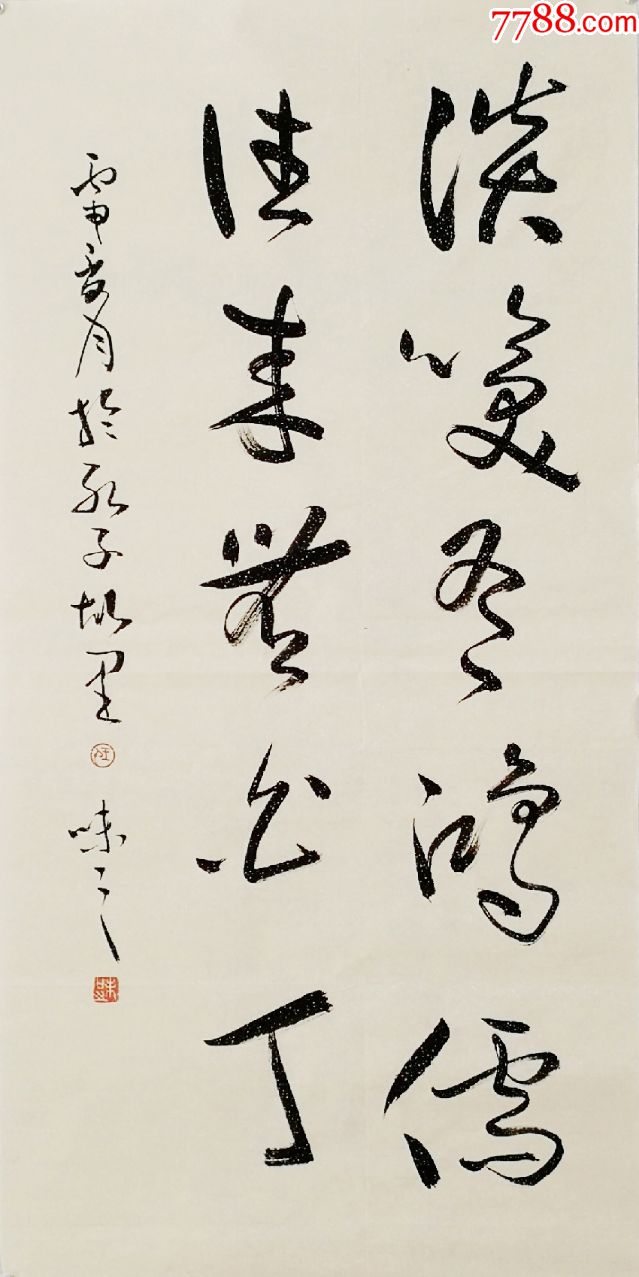 7788.com
談笑有鴻儒
往来無白丁
丙申夏月於孔子故里 味之